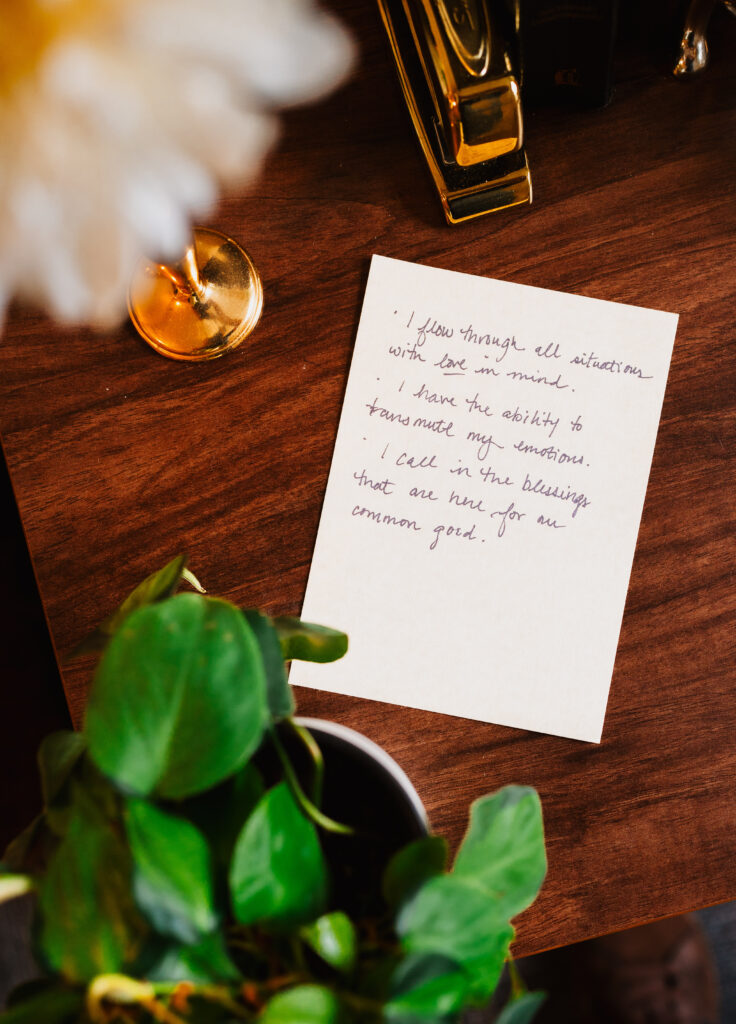 · I flow through all situations
with love in mind.
· I have the ability to
transmute my emotions.
· I call in the blessings
that are here for our
common good.